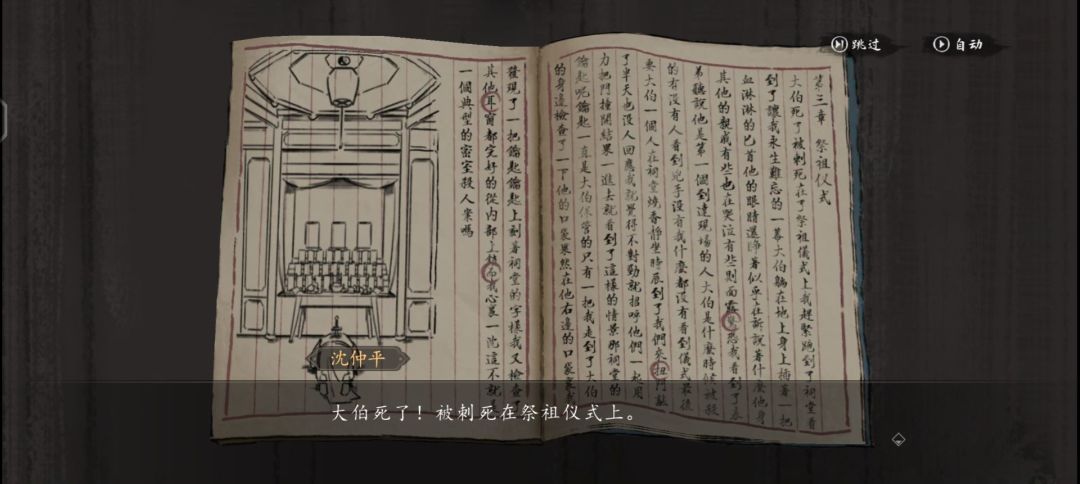 跳过
自动
第三章 祭祖仪式
大伯死了被刺死在了祭祖儀式上我趕緊跑到了祠堂看
到了讓我永生難忘的一幕大伯躺在地上身上插著一把
血淋淋的匕首他的眼睛還睜著似乎在訴說著什麼他身
其他的親戚有些也在哭泣有些則面露驚恐我看到了表
弟聽說他是第一個到達現場的人大伯是什麼時候被殺
的有沒有人看到兇手沒有我什麼都沒有看到儀式最後
要大伯一個人在祠堂燒香靜坐時辰到了我們來扣門敲
了半天也沒人回應我就覺得不對勁就招呼他們一起用
力把門撞開結果一進去就看到了這樣的情景那祠堂的
鑰匙呢鑰匙一直是大伯保管的只有一把我走到了大伯
的身邊檢查了一下他的口袋果然在他右邊的口袋裏
發現了一把鑰匙鑰匙上刻著祠堂的字樣我又檢查
其他耳窗都完好的從內部上鎖而我心裏一沉這不就
一個典型的密室殺人案嗎
沈仲平
大伯死了！被刺死在祭祖仪式上。